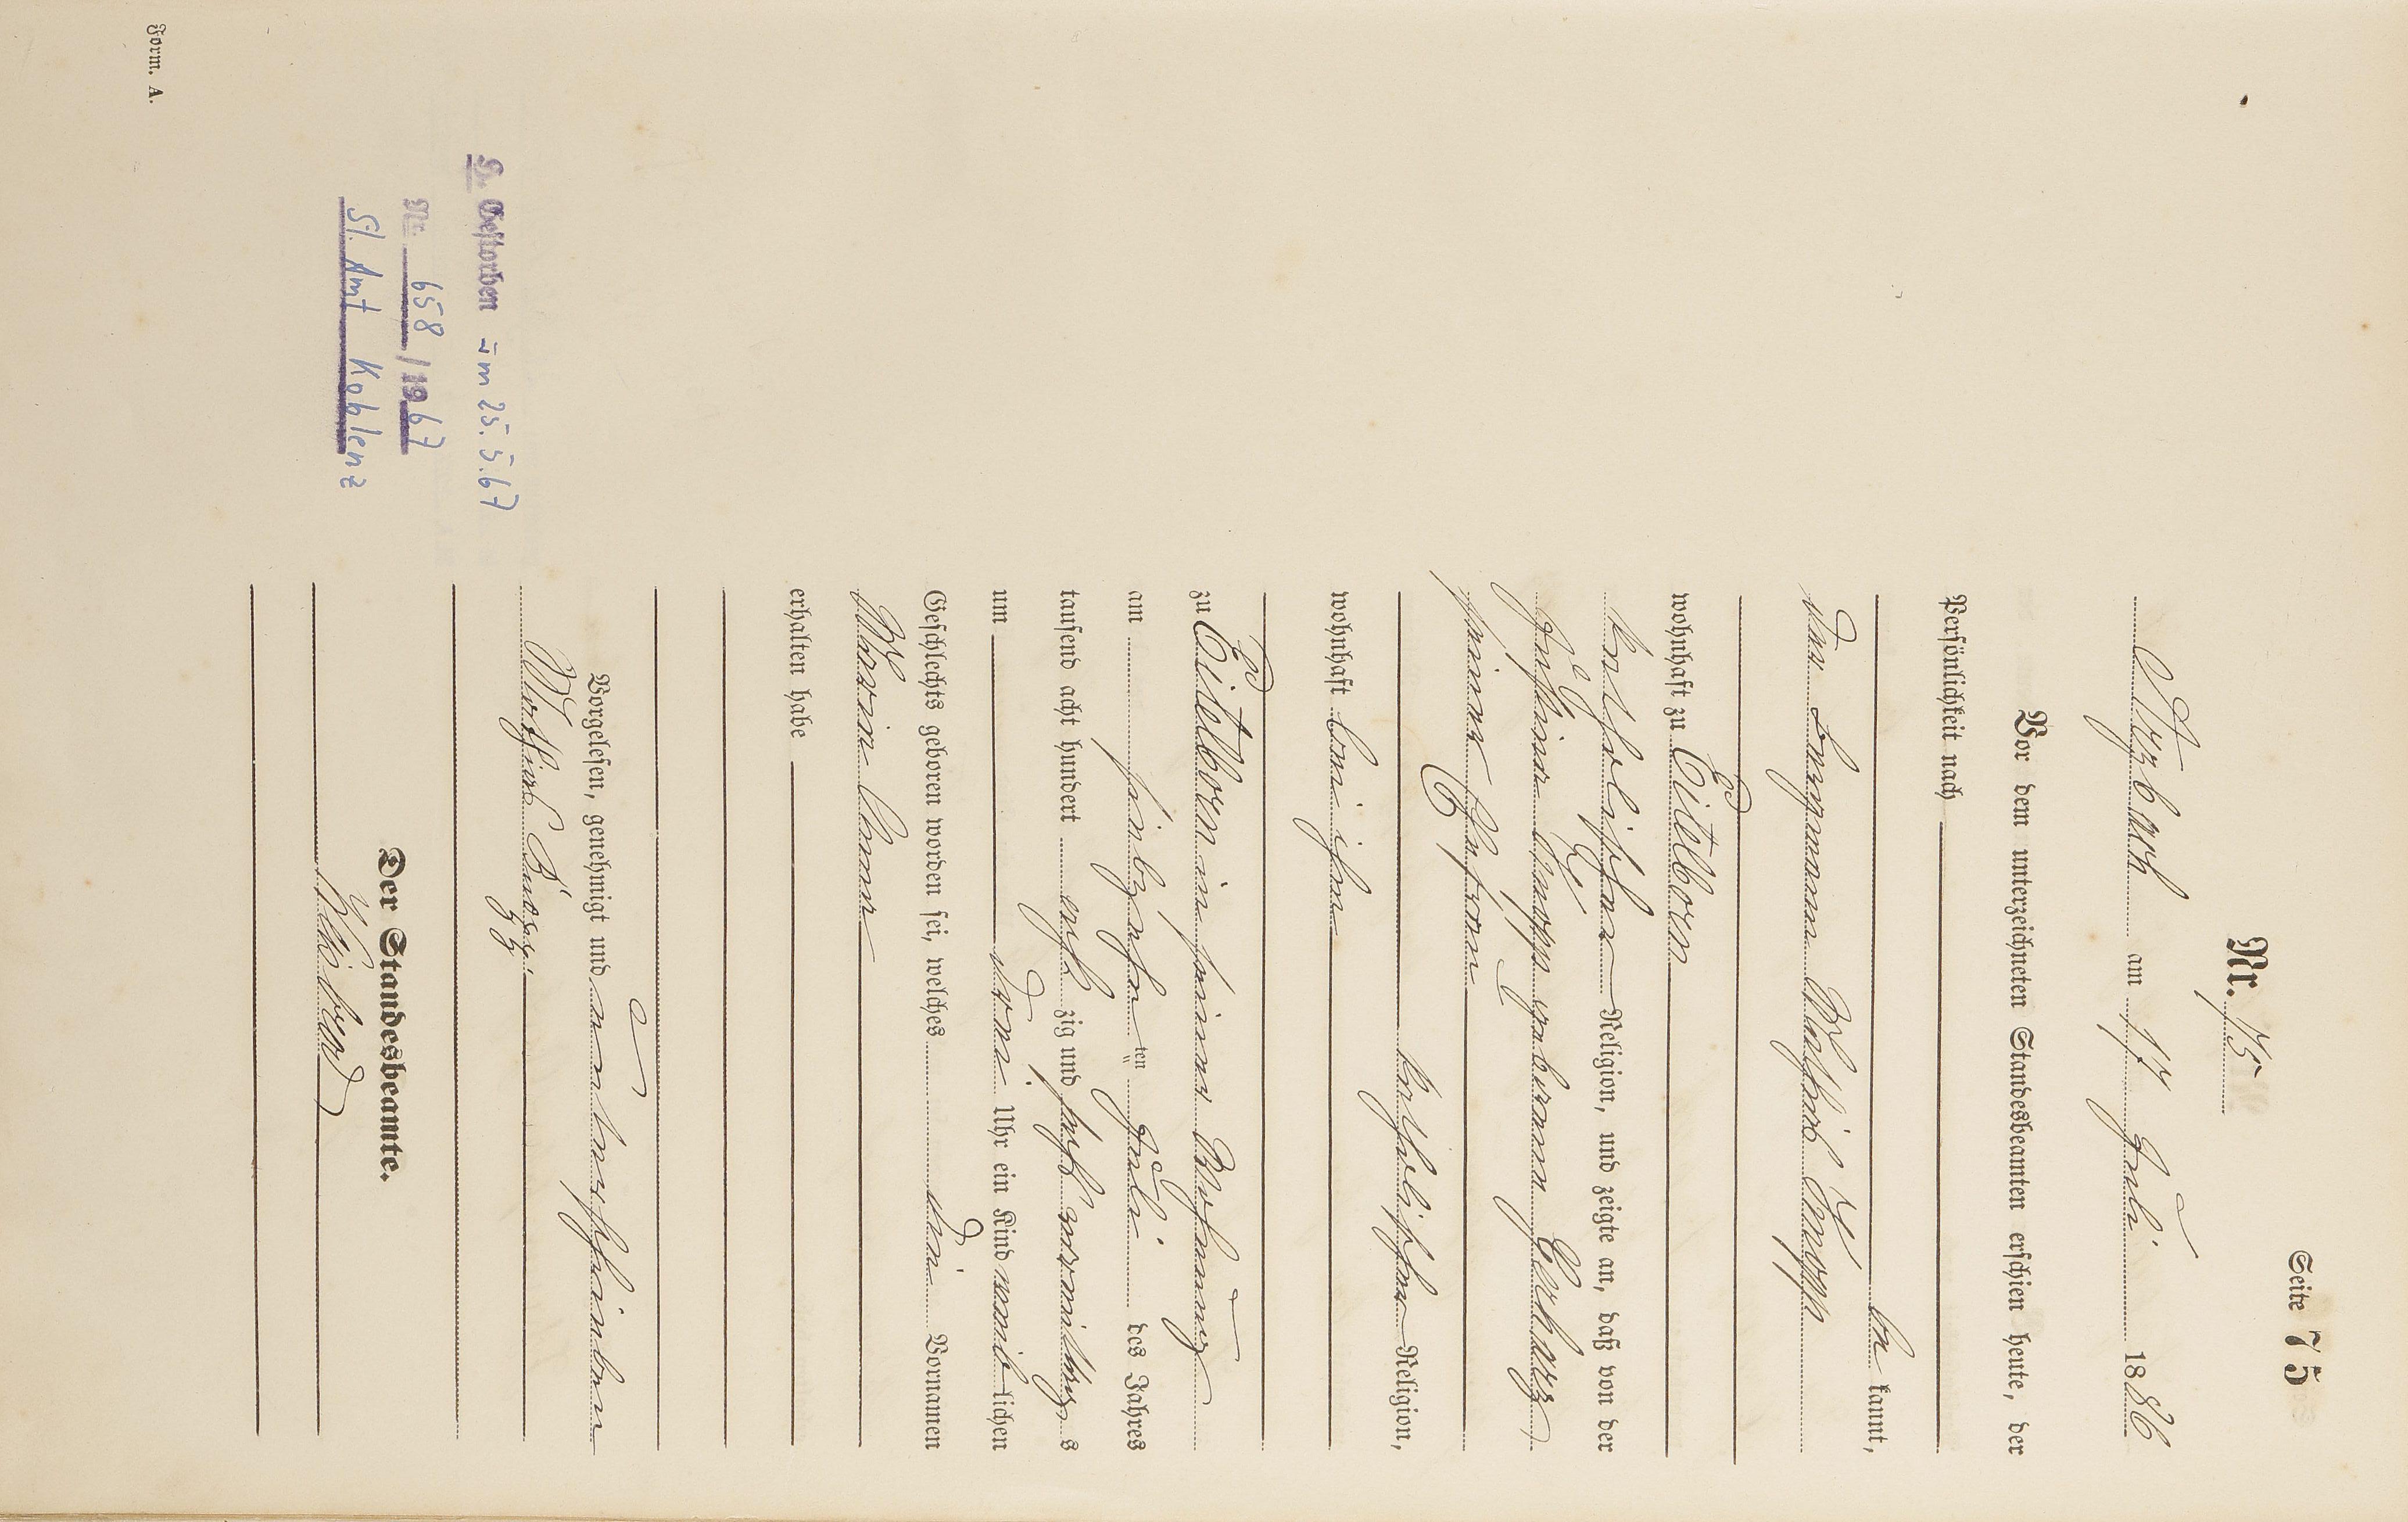 Seite 75
Nr. 75
Arzbach am 17 Juli 1886
Vor dem unterzeichneten Standesbeamten erschien heute, der
Persönlichkeit nach
be kannt,
der Bergmann Mathias Knopp
wohnhaft zu Eitelborn
katholischer Religion, und zeigte an, daß von der
Knopp geborenen Gerharz
seiner Ehefrau
katholischer Religion,
wohnhaft bei ihm
zu Eitelborn in seiner Wohnung
am siebzehnten Juli des Jahres
tausend acht hundert acht zig und sechs s
um drei Uhr ein Kind weiblichen
Geschlechts geboren worden sei, welches die Vornamen
Maria Anna
erhalten habe
Vorgelesen, genehmigt und unterschrieben
Mathias
Der Standesbeamte.
Gestorben am 25.5.67
Nr. 658/1967
St. Amt Koblenz
Form. A.